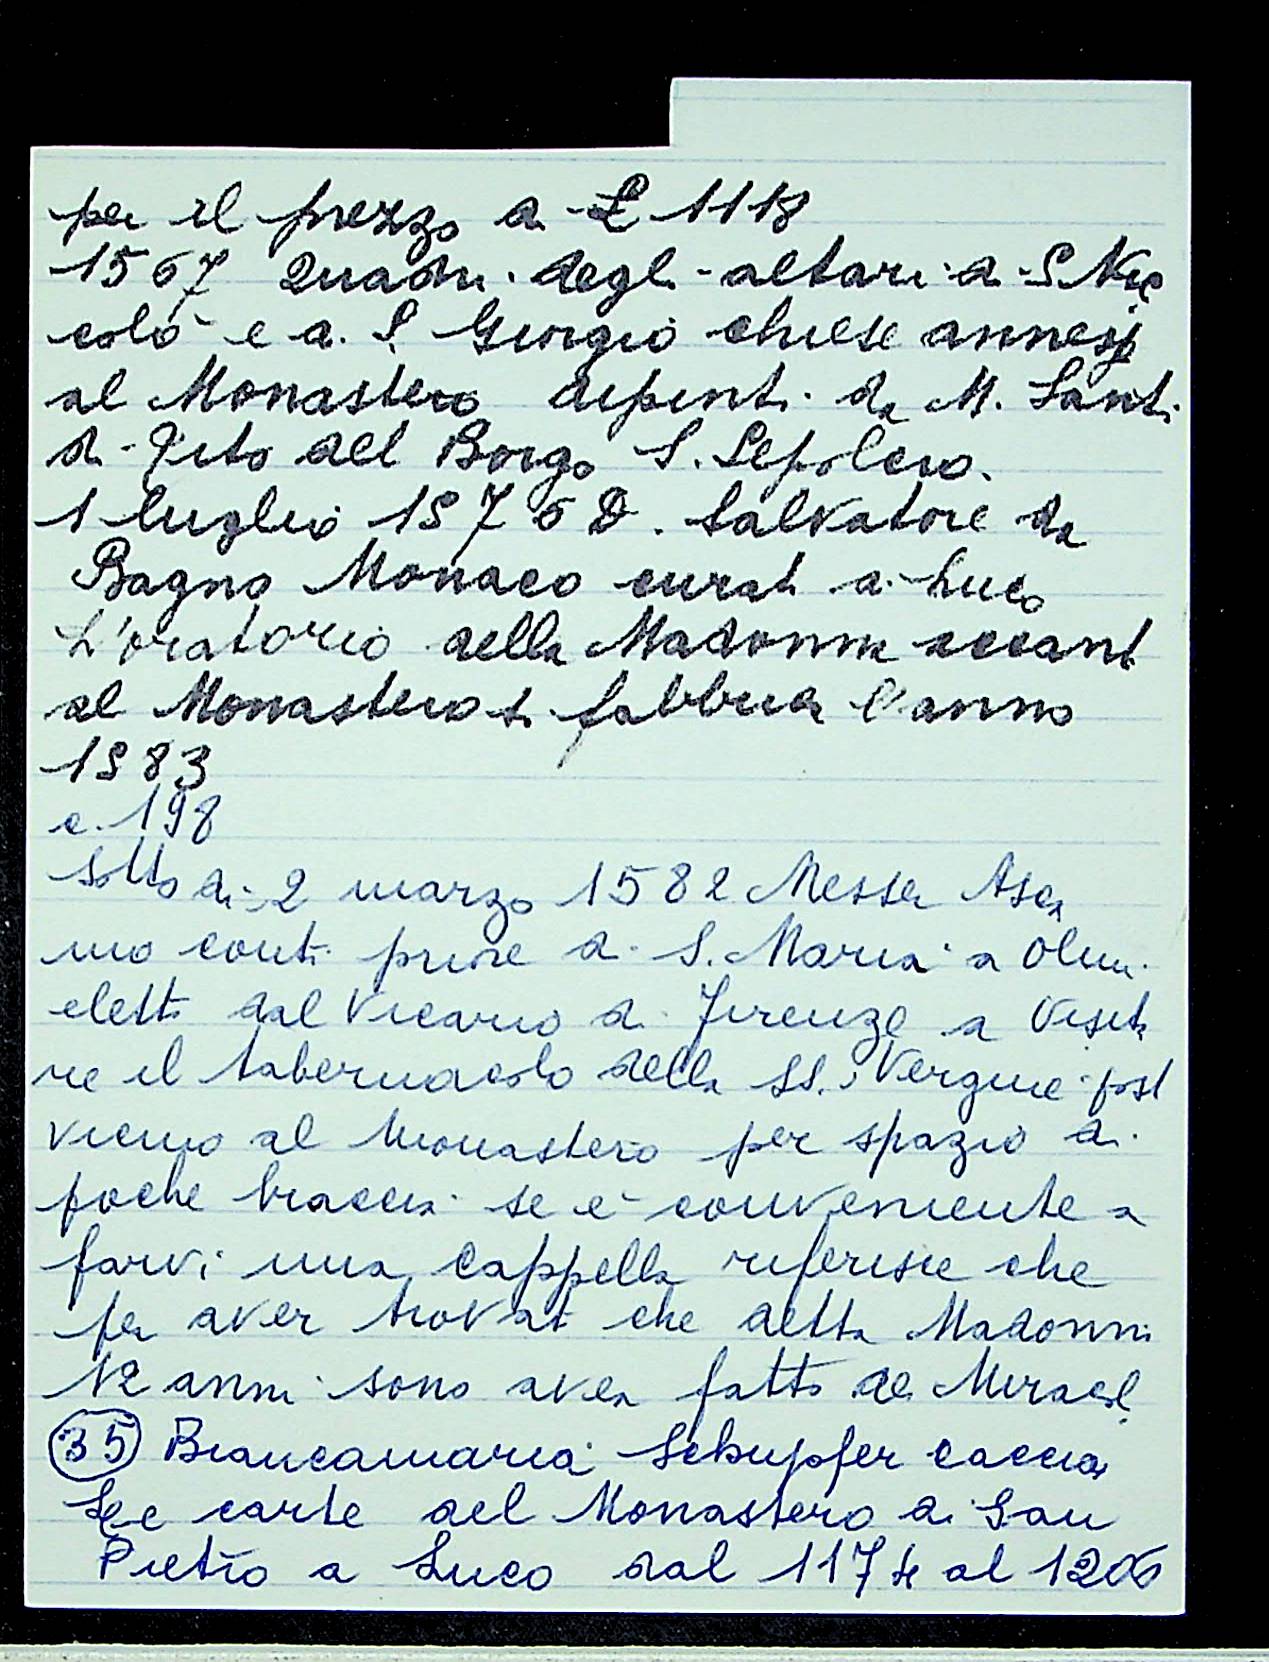 per il prezzo di £ 1118
1567 Quadri degli altari di S Nic
colò e di S. Giorgio chiese annesse
al Monastero dipinti da M. Santi
di Tito del Borgo S. Sepolcro.
1 luglio 1576 D. Salvatore da
Bagno Monaco curati a Luco
L'oratorio della Madonna accanto
al Monastero si fabbrica l'anno
1583
c. 198
Sotto di 2 marzo 1582 Messer Asca
nio conti priore di S. Maria a Olmi
eletto dal Vicario di Firenze a Visita
re il tabernacolo della SS. Vergine posto
vicino al Monastero per spazio di
poche braccia se è conveniente a
farvi una Cappella riferisce che
per aver trovato che detta Madonna
12 anni sono aver fatto dei Miracoli
35 Biancamaria Schupfer Caccia
Le carte del Monastero di San
Pietro a Luco dal 1174 al 1206